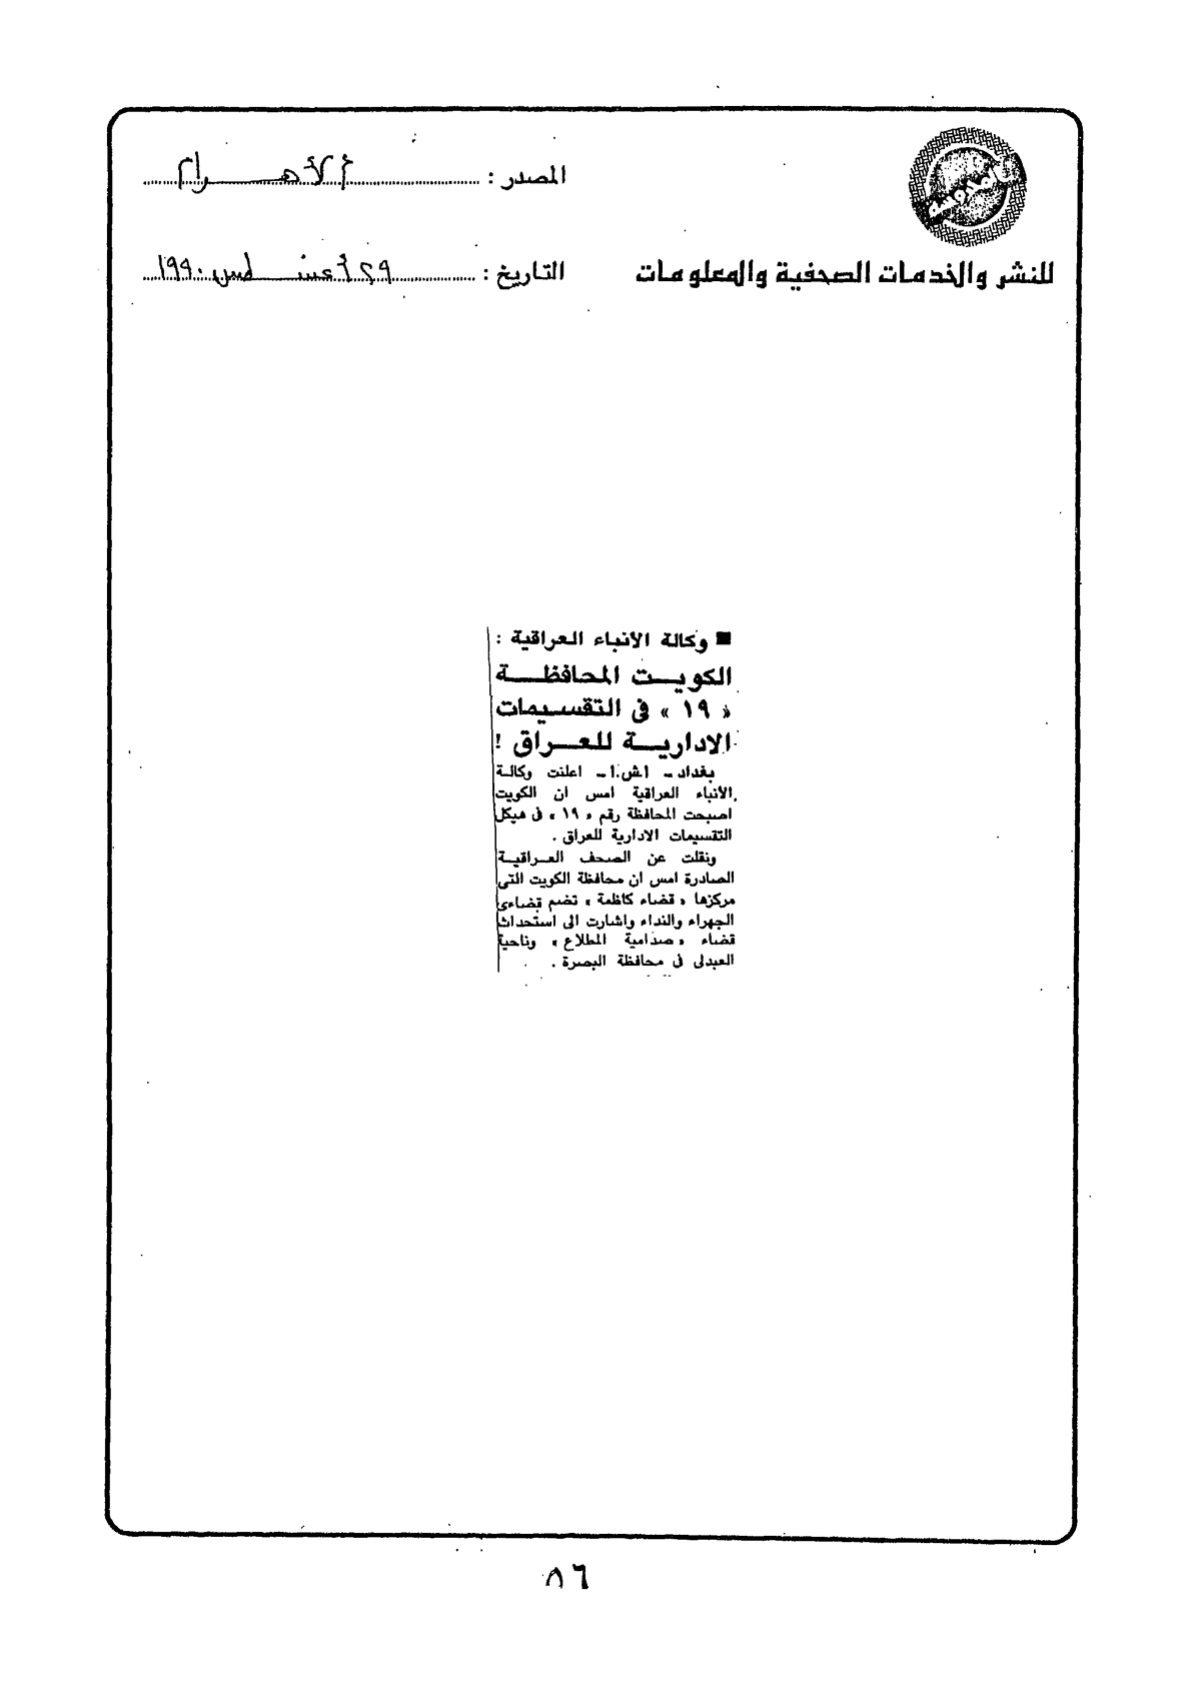 المصدر : الأهرام
للنشر والخدمات الصحفية والمعلومات
التاريخ : ٢٩ أغسطس ١٩٩٠
■ وكالة الأنباء العراقية :
الكويت المحافظة
« ١٩ » فى التقسيمات
الادارية للعراق !
بغداد ـ أ.ش.أ ـ اعلنت وكالة
الأنباء العراقية امس ان الكويت
اصبحت المحافظة رقم « ١٩ » فى هيكل
التقسيمات الادارية للعراق .
ونقلت عن الصحف العراقية
الصادرة امس ان محافظة الكويت التى
مركزها « قضاء كاظمة » تضم قضاءى
الجهراء والنداء واشارت الى استحداث
قضاء « صدامية المطلاع » وناحية
العبدلى فى محافظة البصرة .
٨٦